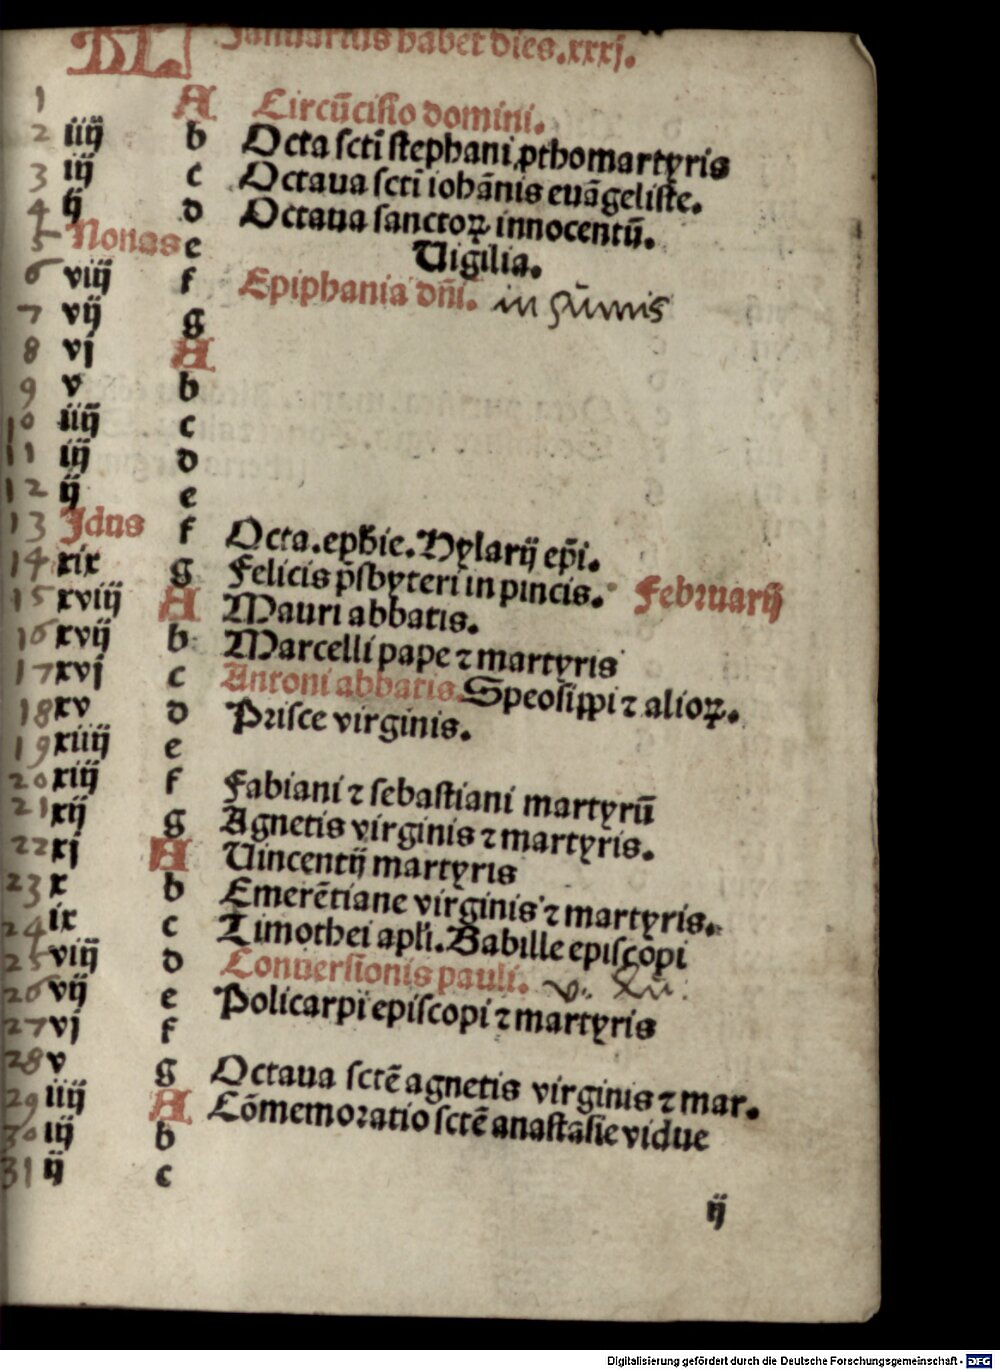 KL Januarius habet dies .xxxj.
1 A Circūcisio domini.
2 iiij b Octa scti stephani ꝓthomartyris
3 iij c Octaua scti iohānis euāgeliste.
4 ij d Octaua sanctoꝝ innocentū.
5 Nonas e Uigilia.
6 viij f Epiphania dñi. in sūmis
7 vij g
8 vj A
9 v b
10 iiij c
11 iij d
12 ij e
13 Idus f Octa.ephie. Hylarij epi.
14 xix g Felicis p̄sbyteri in pincis. Februarij
15 xviij A Mauri abbatis.
16 xvij b Marcelli pape ⁊ martyris
17 xvj c Antoni abbatis. Speosippi ⁊ alioꝝ.
18 xv d Prisce virginis.
19 xiiij e
20 xiij f Fabiani ⁊ sebastiani martyrū
21 xij g Agnetis virginis ⁊ martyris.
22 xj A Uincentij martyris
23 x b Emerētiane virginis ⁊ martyris.
24 ix c Timothei apli. Babille episcopi
25 viij d Conuersionis pauli.
26 vij e Policarpi episcopi ⁊ martyris
27 vj f
28 v g Octaua sctē agnetis virginis ⁊ mar.
29 iiij A Cōmemoratio sctē anastasie vidue
30 iij b
31 ij c
ij
Digitalisierung gefördert durch die Deutsche Forschungsgemeinschaft - DFG